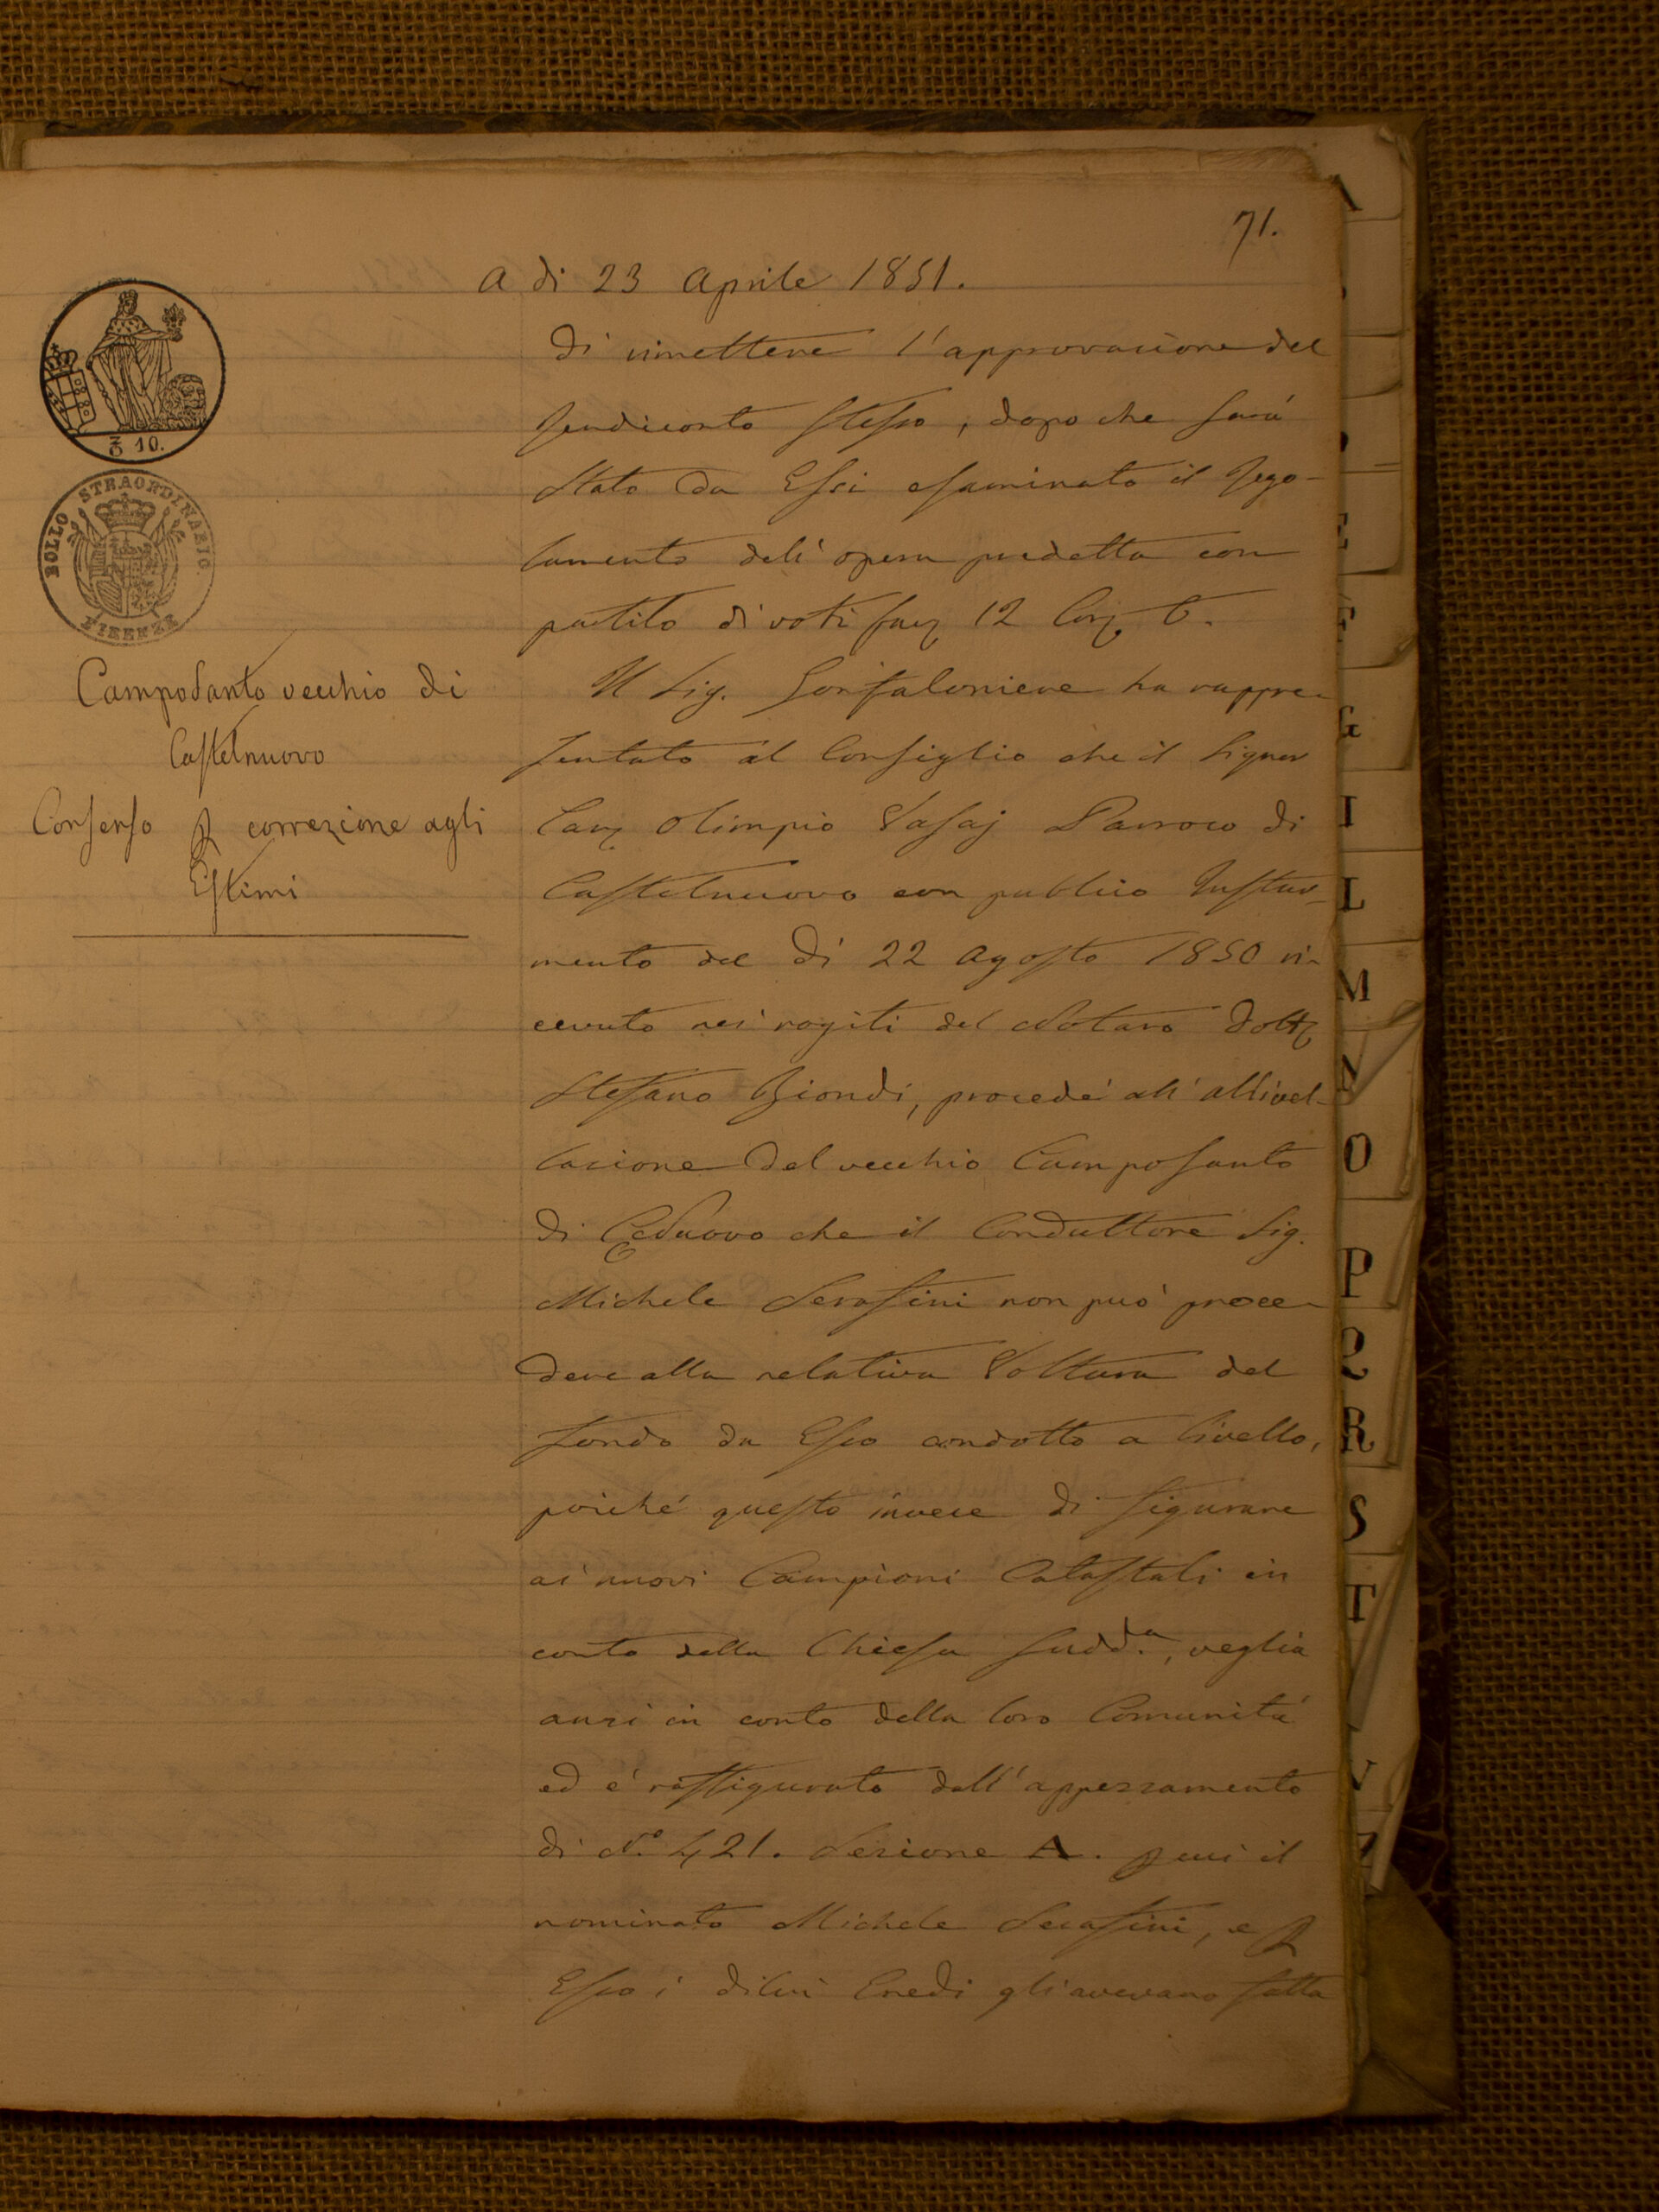 71.
A di 23 Aprile 1851.
di rimettere l'approvazione del
Rendiconto stesso, dopo che sarà
Stato da Essi esaminato il Rego-
lamento dell'opera predetta con
partito di voti fav 12 Con 6.
Il Sig. Gonfaloniere ha rappre-
sentato al Consiglio che il Signor
Can Olimpio Vasaj Parroco di
Castelnuovo con publico Instru-
mento del dì 22 Agosto 1850 ri-
cevuto nei rogiti del Notaro Dott
Stefano Biondi, procedé all'allivel-
lazione del vecchio Camposanto
di C.Nuovo che il Conduttore Sig.
Michele Serafini non può proce-
dere alla relativa Voltura del
fondo da Esso condotto a livello,
poiché questo invece di figurare
ai nuovi Campioni Catastali in
conto della Chiesa sudd.a, veglia
anzi in conto della loro Comunità
ed é raffigurato dall'appezzamento
di N.o 421. Sezione A. p cui il
nominato Michele Serafini, e p
Esso i di lui Eredi gli avevano fatta
BOLLO STRAORDINARIO.
FIRENZE
10.
CampoSanto vecchio di
Castelnuovo
Consenso p correzione agli
Estimi
A
E
F
G
I
L
M
N
O
P
Q
R
S
T
V
Z